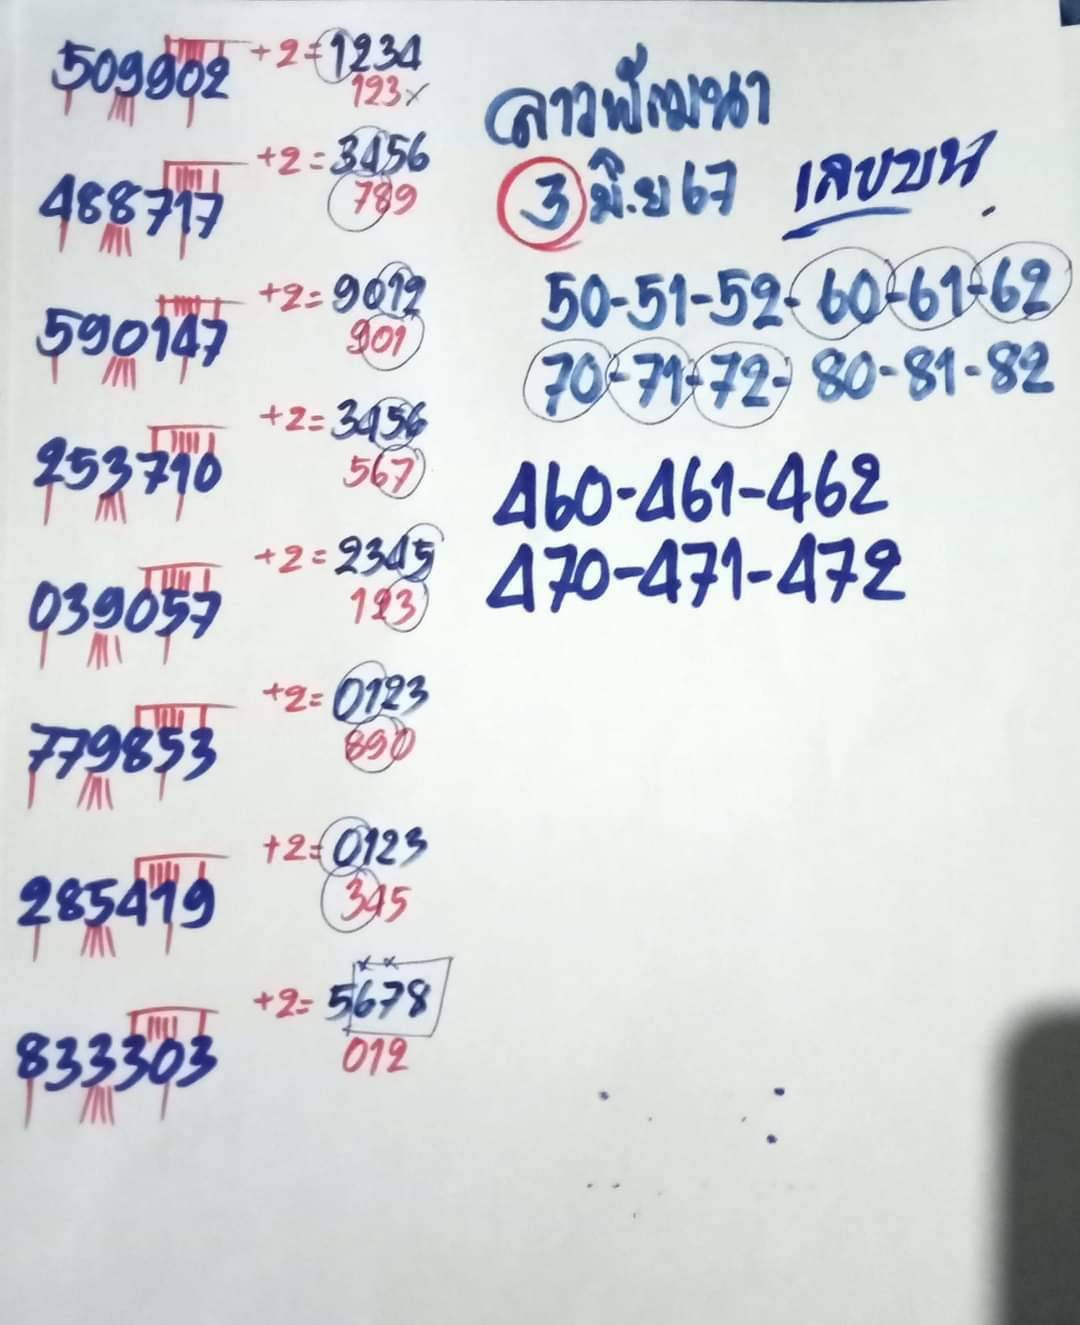 509902 +2= 1234
123×
488717 +2= 3456
789
590147 +2= 9012
901
253710 +2= 3456
567
039057 +2= 2345
123
779853 +2= 0123
890
285419 +2= 0123
345
833303 +2= 5678
012
ลาวพัฒนา
3 มิ.ย 67 เลขบน
50-51-52-60-61-62
70-71-72-80-81-82
460-461-462
470-471-472